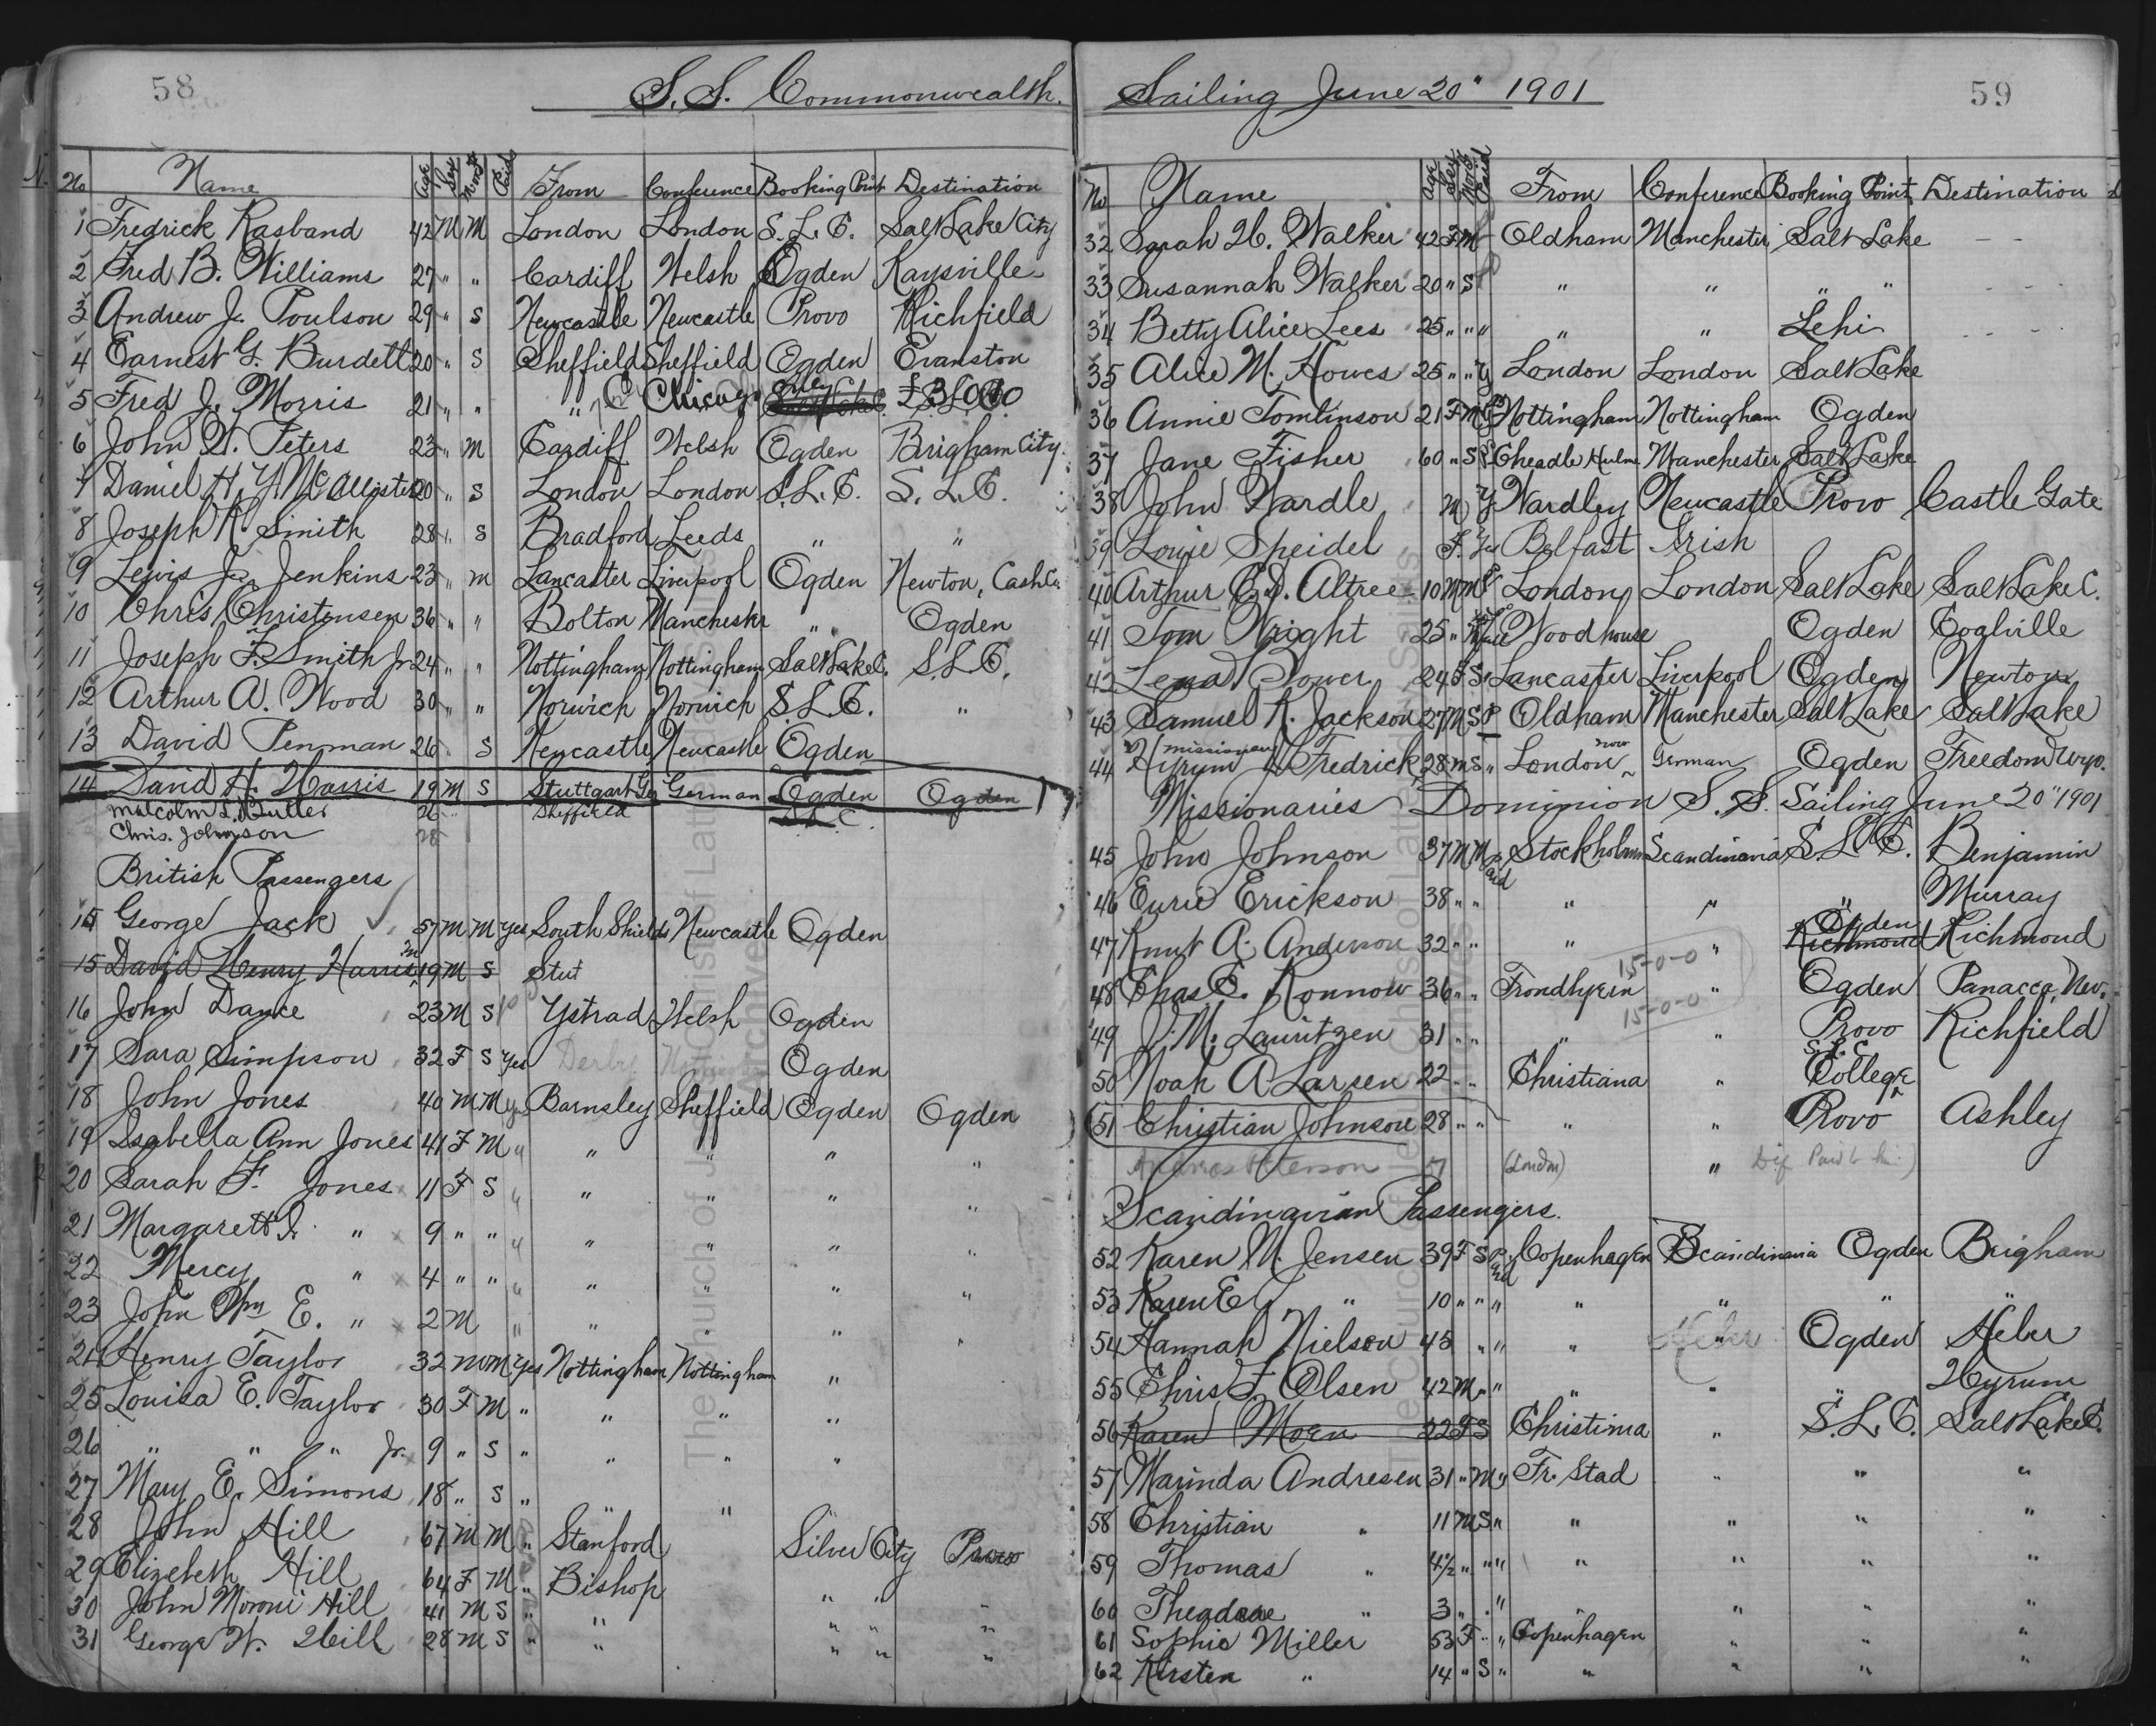 58
S. S. Commonwealth.
No Name Age Sex Paid From Conference Booking Point Destination
1 Fredrick Rasband 42 M M London London S. L. C. Salt Lake City
2 Fred B. Williams 27 " " Cardiff Welsh Ogden Kaysville
3 Andrew J. Poulson 29 " S Newcastle Newcastle Provo Richfield
4 Earnest G. Burdett 20 " S Sheffield Sheffield Ogden Evanston
5 Fred J. Morris 21 " " " Chicago
6 John W. Peters 23 " M Cardiff Welsh Ogden Brigham City.
7 Daniel H. McAllister 20 " S London London S. L. C. S. L. C.
8 Joseph K. Smith 28 " S Bradford Leeds " "
9 Lewis J. Jenkins 23 " m Lancaster Liverpool Ogden Newton, Cash Co.
10 Chris Christensen 36 " " Bolton Manchester " Ogden
11 Joseph F. Smith Jr 24 " " Nottingham Nottingham Salt Lake C. S. L. C.
12 Arthur A. Wood 30 " " Norwich Norwich S. L. C. "
13 David Penman 26 " S Newcastle Newcastle Ogden
14 David H. Harris 19 M S Stuttgart Ger German Ogden Ogden
Malcolm L. Butler 26 Sheffield S. L. C.
Chris. Johnson 28
British Passengers
15 George Jack 57 M M yes South Shields Newcastle Ogden
15 David Henry Harris 19 M S Stut
16 John Dance 23 M S Ystrad Welsh Ogden
17 Sara Simpson 32 F S yes Derby Ogden
18 John Jones 40 M M yes Barnsley Sheffield Ogden Ogden
19 Isabella Ann Jones 41 F M " " " " "
20 Sarah F. Jones 11 F S " " " " "
21 Margarett J. " 9 " " " " " " "
22 Mercy " 4 " " " " " " "
23 John Wm E. " 2 M " " " " "
24 Henry Taylor 32 M M yes Nottingham Nottingham "
25 Louisa E. Taylor 30 F M " " " "
26 " " " Jr. 9 " S " " " "
27 Mary E. Simons 18 " S " " "
28 John Hill 67 M M " Stanford Silver City Provo
29 Elizebeth Hill 64 F M " Bishop " " "
30 John Moroni Hill 41 M S " " " " "
31 George W. Hill 28 M S " " " " "
Sailing June 20" 1901
59
No Name Age Sex Paid From Conference Booking Point Destination
32 Sarah H. Walker 42 F M Oldham Manchester Salt Lake - -
33 Susannah Walker 20 " S " " " " - - -
34 Betty Alice Lees 25 " " " " " Lehi - - -
35 Alice M. Howes 25 " " y London London Salt Lake
36 Annie Tomlinson 21 F M Nottingham Nottingham Ogden
37 Jane Fisher 60 " S Cheadle Hulm Manchester Salt Lake
38 John Wardle M y Wardley Newcastle Provo Castle Gate
39 Louie Speidel F. Yes Belfast Irish
40 Arthur E. D. Altree 10 M M London London Salt Lake Salt Lake C.
41 Tom Wright 25 " Woodhouse Ogden Coalville
42 Lena Power 24 F S " Lancaster Liverpool Ogden Newton
43 Samuel R. Jackson 27 M S P Oldham Manchester Salt Lake Salt Lake
44 Hyrum missionary Fredrick 28 m S " London now German Ogden Freedom Wyo.
Missionaries Dominion S. S. Sailing June 20" 1901
45 John Johnson 37 M M Paid Stockholm Scandinavia S. L. C. Benjamin
46 Eurie Erickson 38 " " " " " Murray
47 Knut A. Anderson 32 " " " " Richmond Ogden Richmond
15-0-0
48 Chas E. Ronnow 36 " " Trondhjem " Ogden Panacca, Nev.
15-0-0
49 J. M. Lauritzen 31 " " " " Provo Richfield
50 Noah A Larsen 22 " " Christiana " S. L. C. College
51 Christian Johnson 28 " " " " Provo Ashley
Andreas Peterson 51 (London) "
Scandinavian Passengers.
52 Karen M. Jensen 39 F S Paid Copenhagen Scandinavia Ogden Brigham
53 Karen E " 10 " " " " " " "
54 Hannah Nielson 43 " " " " Heber Ogden Heber
55 Chris F. Olsen 42 M " " " " " Hyrum
56 Karen Moen 22 F S Christinia " S. L. C. Salt Lake C.
57 Marinda Andresen 31 " M " Fr. Stad " " "
58 Christian " 11 M S " " " " "
59 Thomas " 4½ " " " " " " "
60 Theodore " 3 " " " " " " "
61 Sophie Miller 53 F " " Copenhagen " " "
62 Kirsten " 14 " S " " " " "